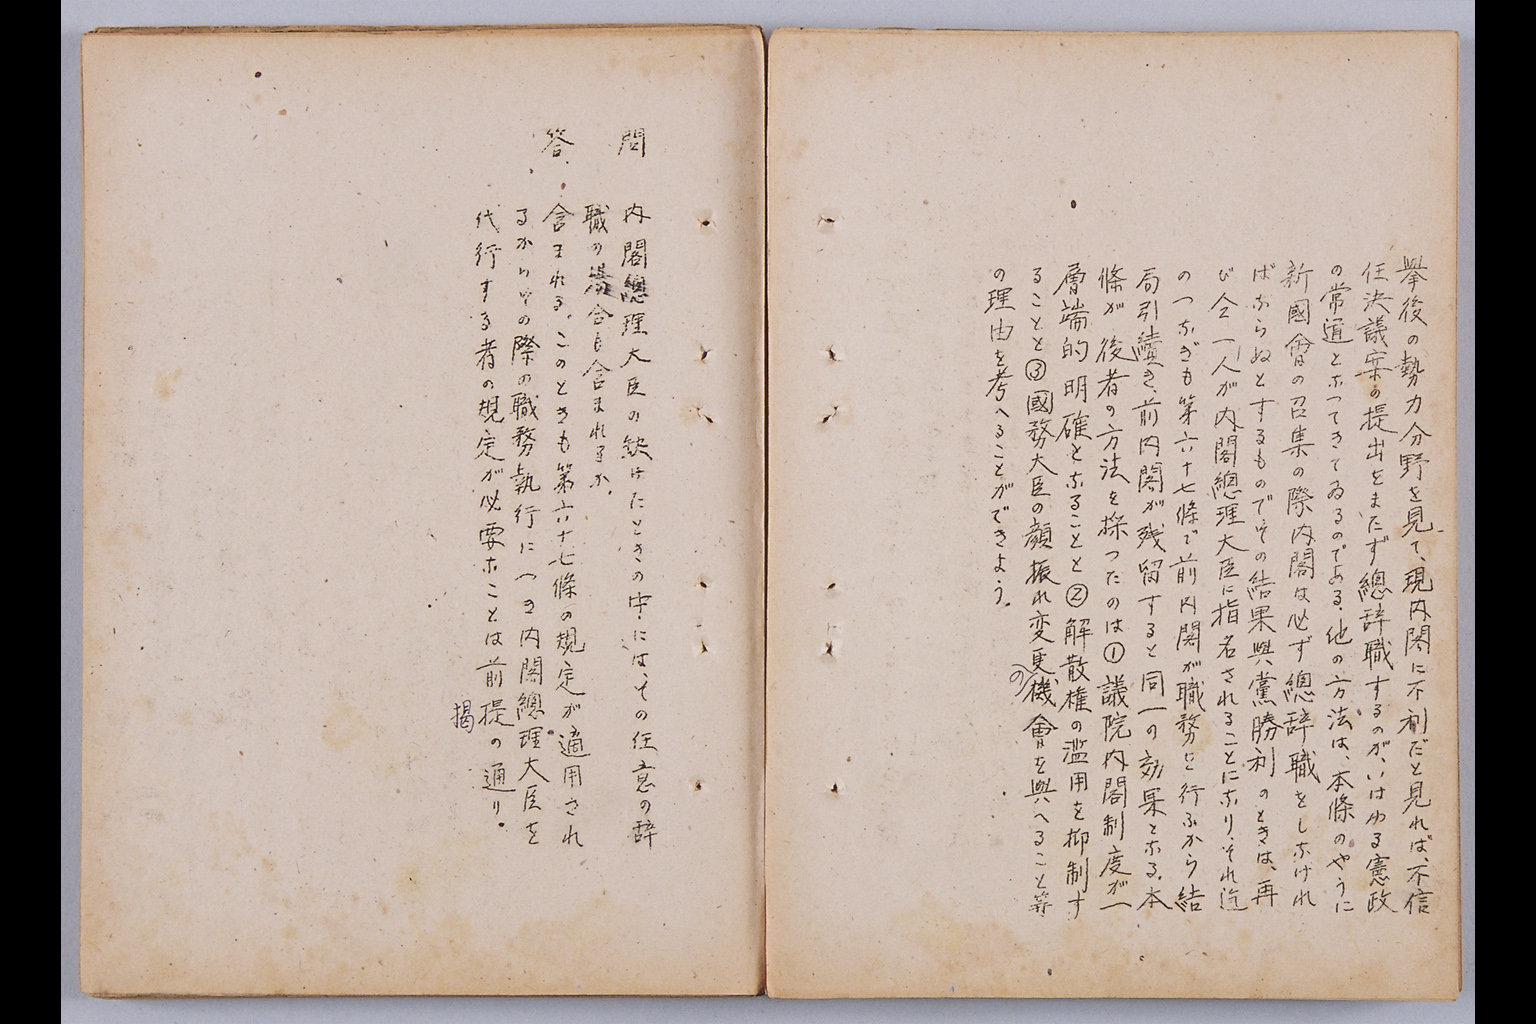 擧後の勢力分野を見て、現内閣に不利だと見れば、不信
任決議案の提出をまたず總辞職するのが、いはゆる憲政
の常道となつてきてゐるのである。他の方法は、本條のやうに
新國會の召集の際内閣は必ず總辞職をしなければ
ばならぬとするものでその結果與黨勝利のときは、再
び今一人が内閣總理大臣に指名されることになり、それ迄
のつなぎも第六十七條で前内閣が職務を行ふから結
局引續き、前内閣が残留すると同一の効果となる。本
條が後者の方法を採つたのは①議院内閣制度が一
層端的明確となることと②解散権の濫用を抑制す
ることと③國務大臣の顔振れ変更の機會を與へること等
の理由を考へることができよう。
問 内閣總理大臣の欠けたときの中には、その任意の辞
職の場合も含まれるか。
答. 含まれる。このときも第六十七條の規定が適用され
るからその際の職務執行につき内閣總理大臣を
代行する者の規定が必要なことは前提の通り。
掲